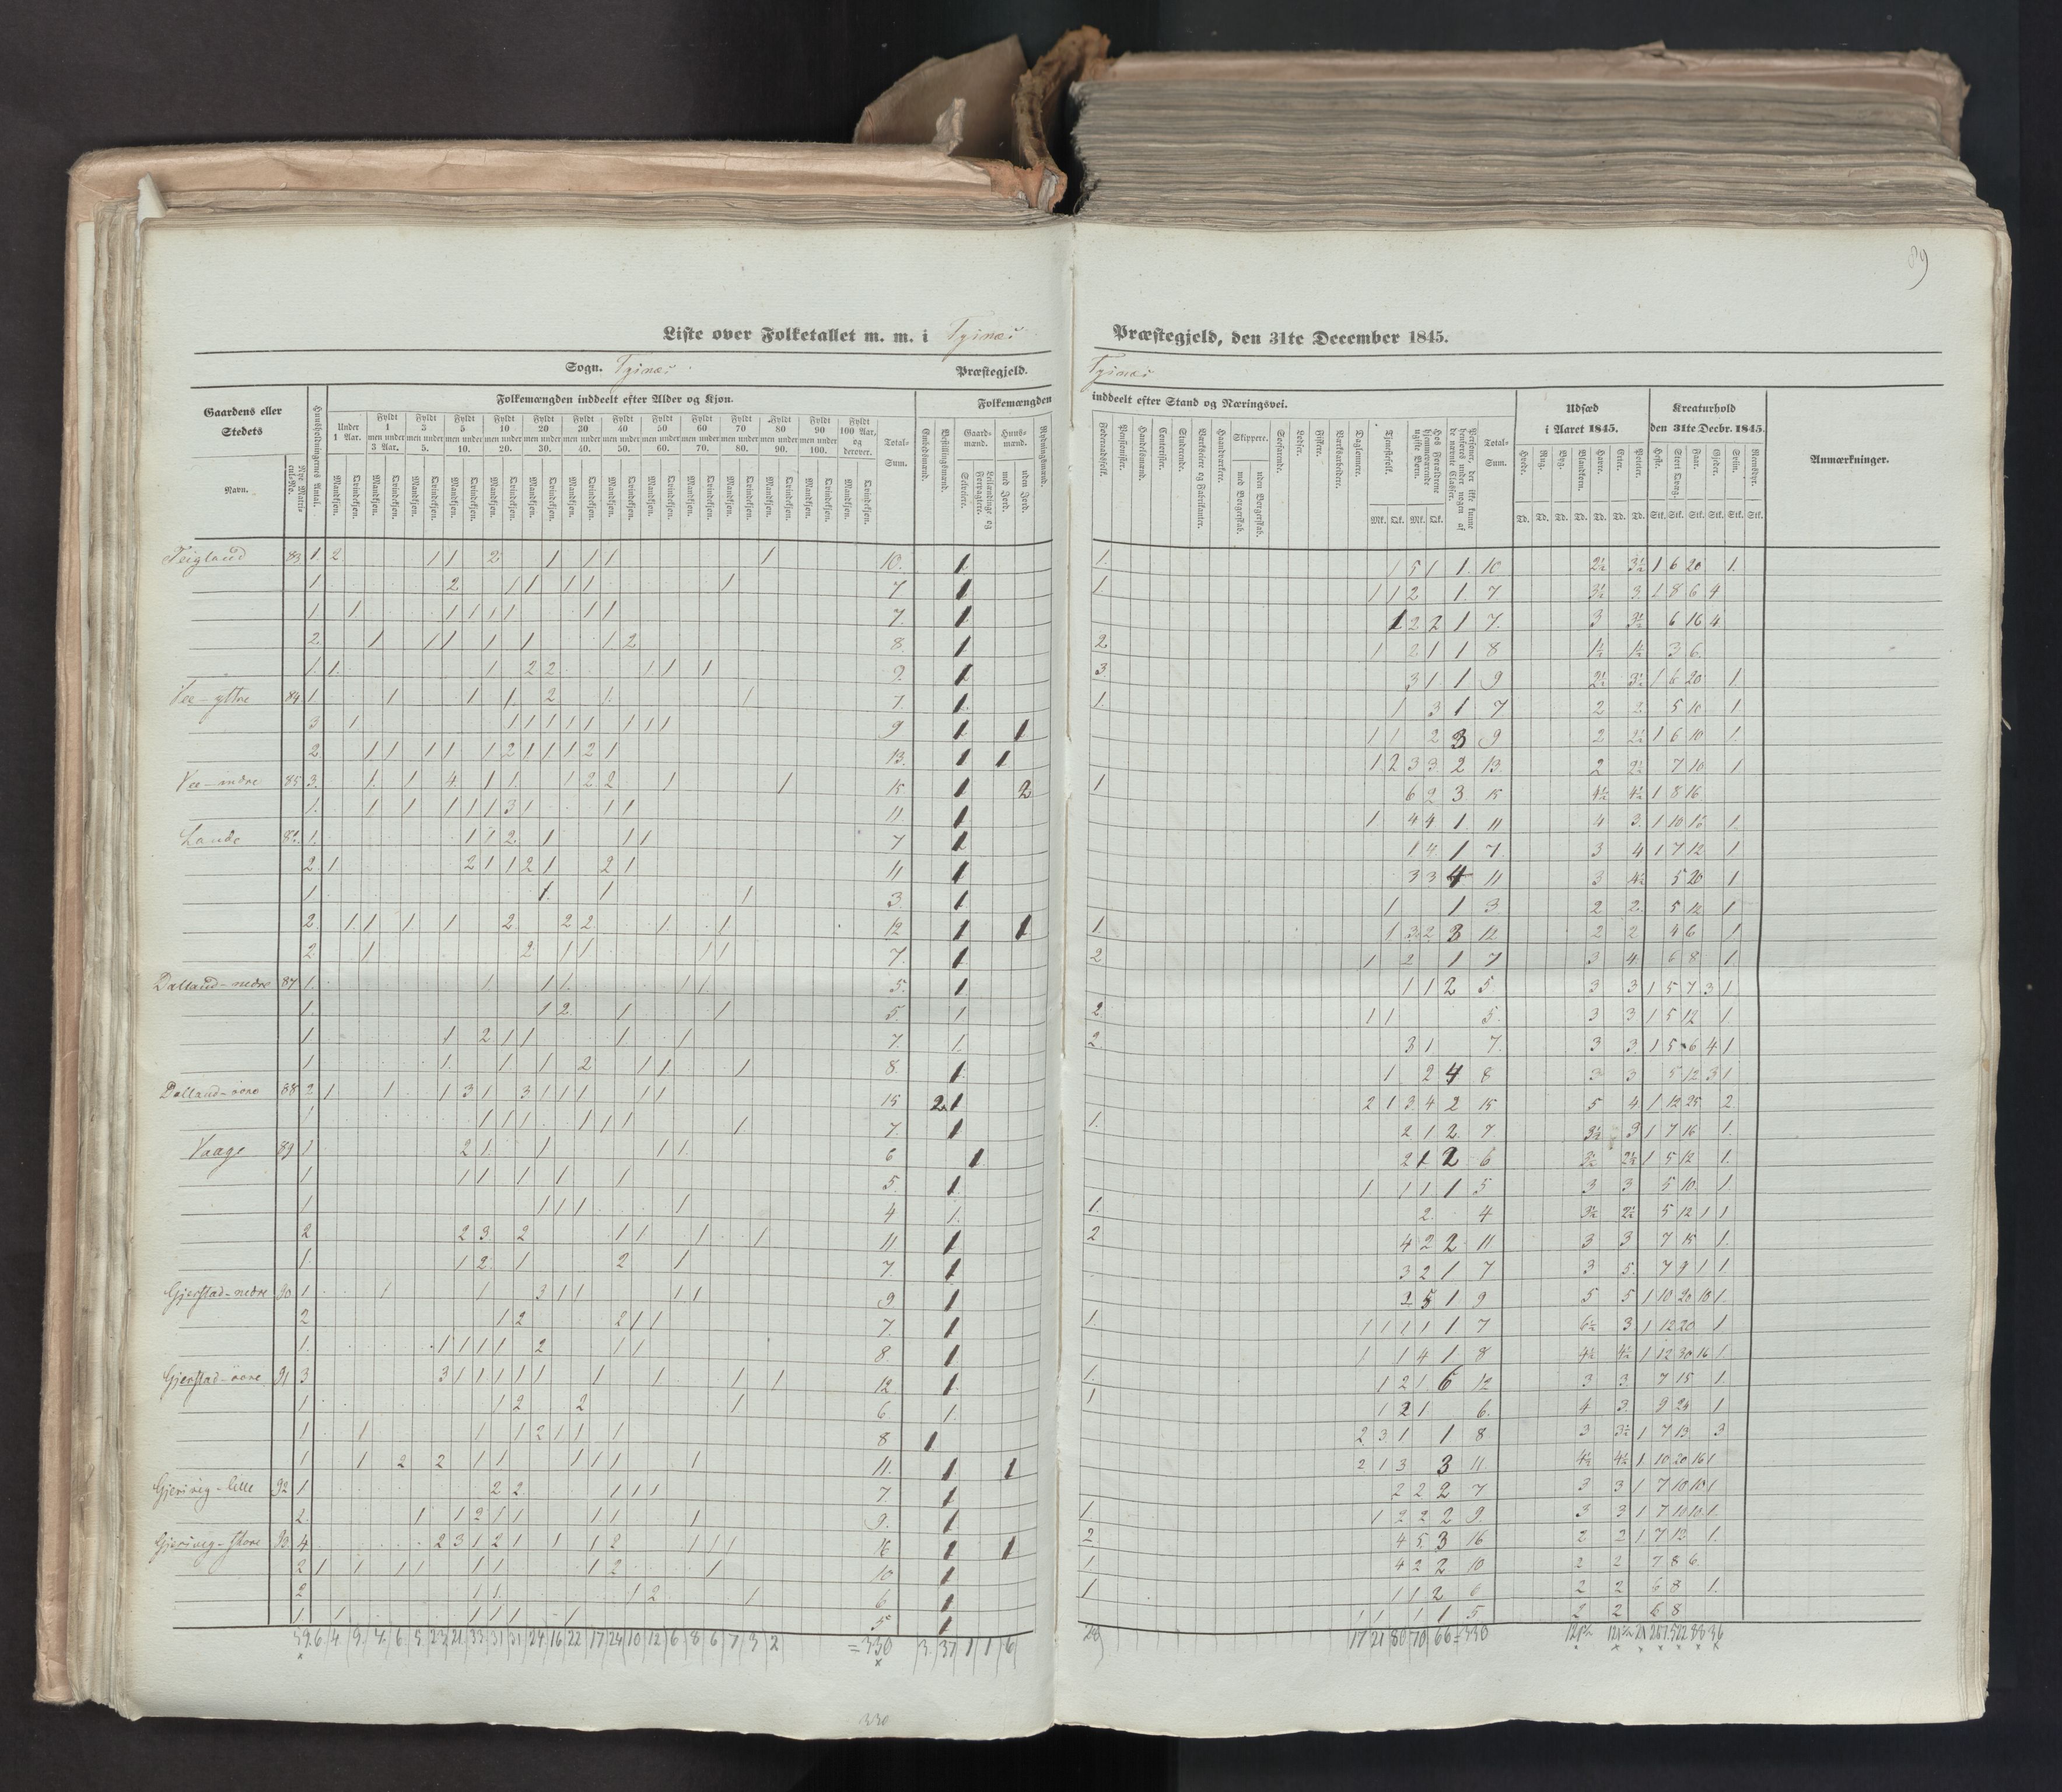 89
Liste over Folketallet m. m. i Tysnæs Præstegjeld, den 31te December 1845.
Sogn. Tysnæs Præstegjeld. Tysnæs
Gaardens eller Stedets
Navn.
Nye Matrikul-No.
Huusholdningernes Antal.
Folkemængden inddeelt efter Alder og Kjøn.
Under 1 Aar.
Fyldt 1 men under 3 Aar.
Fyldt 3 men under 5.
Fyldt 5 men under 10.
Fyldt 10 men under 20.
Fyldt 20 men under 30.
Fyldt 30 men under 40.
Fyldt 40 men under 50.
Fyldt 50 men under 60.
Fyldt 60 men under 70.
Fyldt 70 men under 80.
Fyldt 80 men under 90.
Fyldt 90 men under 100.
Fyldt 100 Aar, og derover.
Mandkjøn. Qvindekjøn.
Total-Sum.
Folkemængden inddeelt efter Stand og Næringsvei.
Embedsmænd.
Bestillingsmænd.
Gaardmænd.
Selveiere.
Leilændinge og Forpagtere.
Huusmænd.
med Jord.
uden Jord.
Rydningsmænd.
Føderaadsfolk.
Pensionister.
Handelsmænd.
Contorister.
Studerende.
Værkseiere og Fabrikanter.
Haandværkere.
Skippere.
med Borgerskab.
uden Borgerskab.
Søefarende.
Lodser.
Fiskere.
Værksarbeidere.
Dagleiere.
Tjenestefolk.
Hos Forældrene hjemmeværende ugifte Børn.
Mk. Qk. Mk. Qk.
Personer, der ikke kunne henføres under nogen af de nævnte Classer.
Total-Sum.
Udsæd i Aaret 1845.
Hvede. Rug. Byg. Blandkorn. Havre. Erter. Poteter.
Td. Td. Td. Td. Td. Td. Td.
Kreaturhold den 31te Decbr. 1845.
Heste. Stort Qvæg. Faar. Gjeder. Sviin. Reensdyr.
Stk. Stk. Stk. Stk. Stk. Stk.
Anmærkninger.
Teigland 83 1. 2 1 1 2 1 1 1 1 10. 1. 1. 1 5 1 1. 10 2½ 3½ 1 6 20 1.
1 2 1 1 1 1 1 7 1. 1. 1 1 2 1. 7 3½ 3. 1 8 6 4
1 1. 1 1 1 1 1 1 7. 1. 1 2 2 1 7. 3 3½ 6 16 4
2 1 1 1 1 1 1 2 8 1 2 1 2 1 1 8 1½ 1½ 3 6
1. 1. 1 2 2 1 1 1 9. 1 3 3 1 1 9 2½ 3½ 1 6 20 1
Vee-yttre 84 1. 1 1 1. 2 1. 1 7. 1. 1. 1 3 1 7. 2 2. 5 10 1
3 1 1 1 1 1 1 1 1 1 9 1 1 1 1 2 3 9 2 2½ 1 6 10 1.
2 1 1 1 1 1 2 1 1 1 2 1 13. 1 1 1. 2 3 3 2 13. 2 2½ 7 10 1
Vee-indre 85 3. 1. 1 4. 1 1. 1 2 2 1 1 15 1 2 1 6 2 3. 15 4½ 4½ 1 8 16
1. 1 1 1 1 1 3 1 1 1 11 1 1 4 4 1 11 4 3. 1 10 16 1.
Lande 86. 1. 1 1 2 1 1 1 7 1 1. 4 1 7. 3 4 1 7 12 1
2. 1 2 1 1 2 1 2 1 11 1 3 3 4 11 3 4½ 5 20 1.
1 1. 1 1 3. 1. 1 1 3. 2 2. 5 12 1
2. 1 1 1 1 2. 2 2. 1. 1. 12 1 1 1 1. 3. 2 3 12 2 2 4 6 1
2. 1 2 1 1 1 1 7. 1. 2 1 2 1 7 3 4. 6 8 1
Dalland-nedre 87 1. 1 1 1. 1 1. 5. 1 1 1 2 5. 3 3 1 5 7 3 1
1. 1 2. 1 1 5. 1 2 1 1 5. 3 3 1 5 12 1.
1 1 2 1 1 1 1 7. 1. 2. 3 1 7. 3 3. 1 5 6 4 1
1 1. 1. 1 2 1 1 1 8. 1. 1 2 4 8 3 3 5 12 3 1
Dalland-øvre 88 2 1 1 1 3 1 3 1 1 1 1 1 15 2 1 2 1 3. 4 2 15 5 4 1 12 25 2.
1 1 1 1 1 1 1 1. 7. 1 1. 2 1 2. 7. 3½ 3 1 7 16 1.
Vaage 89 1 2 1. 1 1 1. 6 1. 2 1 2 6 3½ 2½ 1 5 12 1.
1 1 1 1 1 1 5. 1. 1. 1 1 1 5 3 3 5 10. 1.
1 1 1 1 1 4 1. 1. 2. 4 3½ 2½ 5 12 1 1
2 2 3. 2 1 1 1 1 11 1 2 4 2 2 11 3 3 7 15 1.
1. 1 2. 1 2 1 7. 1 3 2 1 7 3 5. 7 9 1 1
Gjerstad-nedre 90 1 1 1 3 1 1 1 1 9 1 2 5 1 9 5 5 1 10 20 10 1.
2 1 2 2 1 1 7. 1 1. 1 1 1 1 1 7 6½ 3 1 12 20 1
1. 1 1 1 1 2 1 1 8. 1. 1 1 4 1 8 4½ 4½ 1 12 30 16 1
Gjerstad-øvre 91 3 3 1 1 1 1 1 1 1 1 1 12 1. 1. 1 2 1. 6 12 3 3 7 15 1.
1 1 2 2 1 6 1. 1 1 2 1 6. 4 3. 9 24 1
1 1 1 1 2 1 1 1 8 1 2 3 1 1 8 3 3½ 1 7 13 3
1 1 2 2 1 1 1 1 1 1 11. 1. 1 2 1 3 3 11. 4½ 4½ 1 10 20 16 1
Gjersvig-lille 92 1 2 2. 1 1 1 7. 1 2 2 2 7 3 3 1 7 10 10 1
2. 1 1 2 1 1 1 1 1 9. 1. 1 1 2 2 2 9. 3 3 1 7 10 10 1.
Gjersvig-store 93 4 2 3 1 2 1 1 1 2 1 1 1 16 1 1 2 4 5 3 16 2 2 1. 7 12 1.
2 1 1 1 1 1 1 1 2 1 10 1 1 4 2 2 10 2 2 7 8 6.
2 1 1. 1 2 1 6 1 1 1 1 2 6 2 2 6 8 1.
1. 1 1 1 1 1 5 1 1 1 1 1 5 2 2 6 8
59. 6 4 9. 7. 6 5. 23 21. 33 31 31 24 16 22 17 24 10 12 6 8 6 7 3 2 = 330 3. 37 1 1 6
28 17 21 80 70 66 = 330 121½ 121½ 21
330